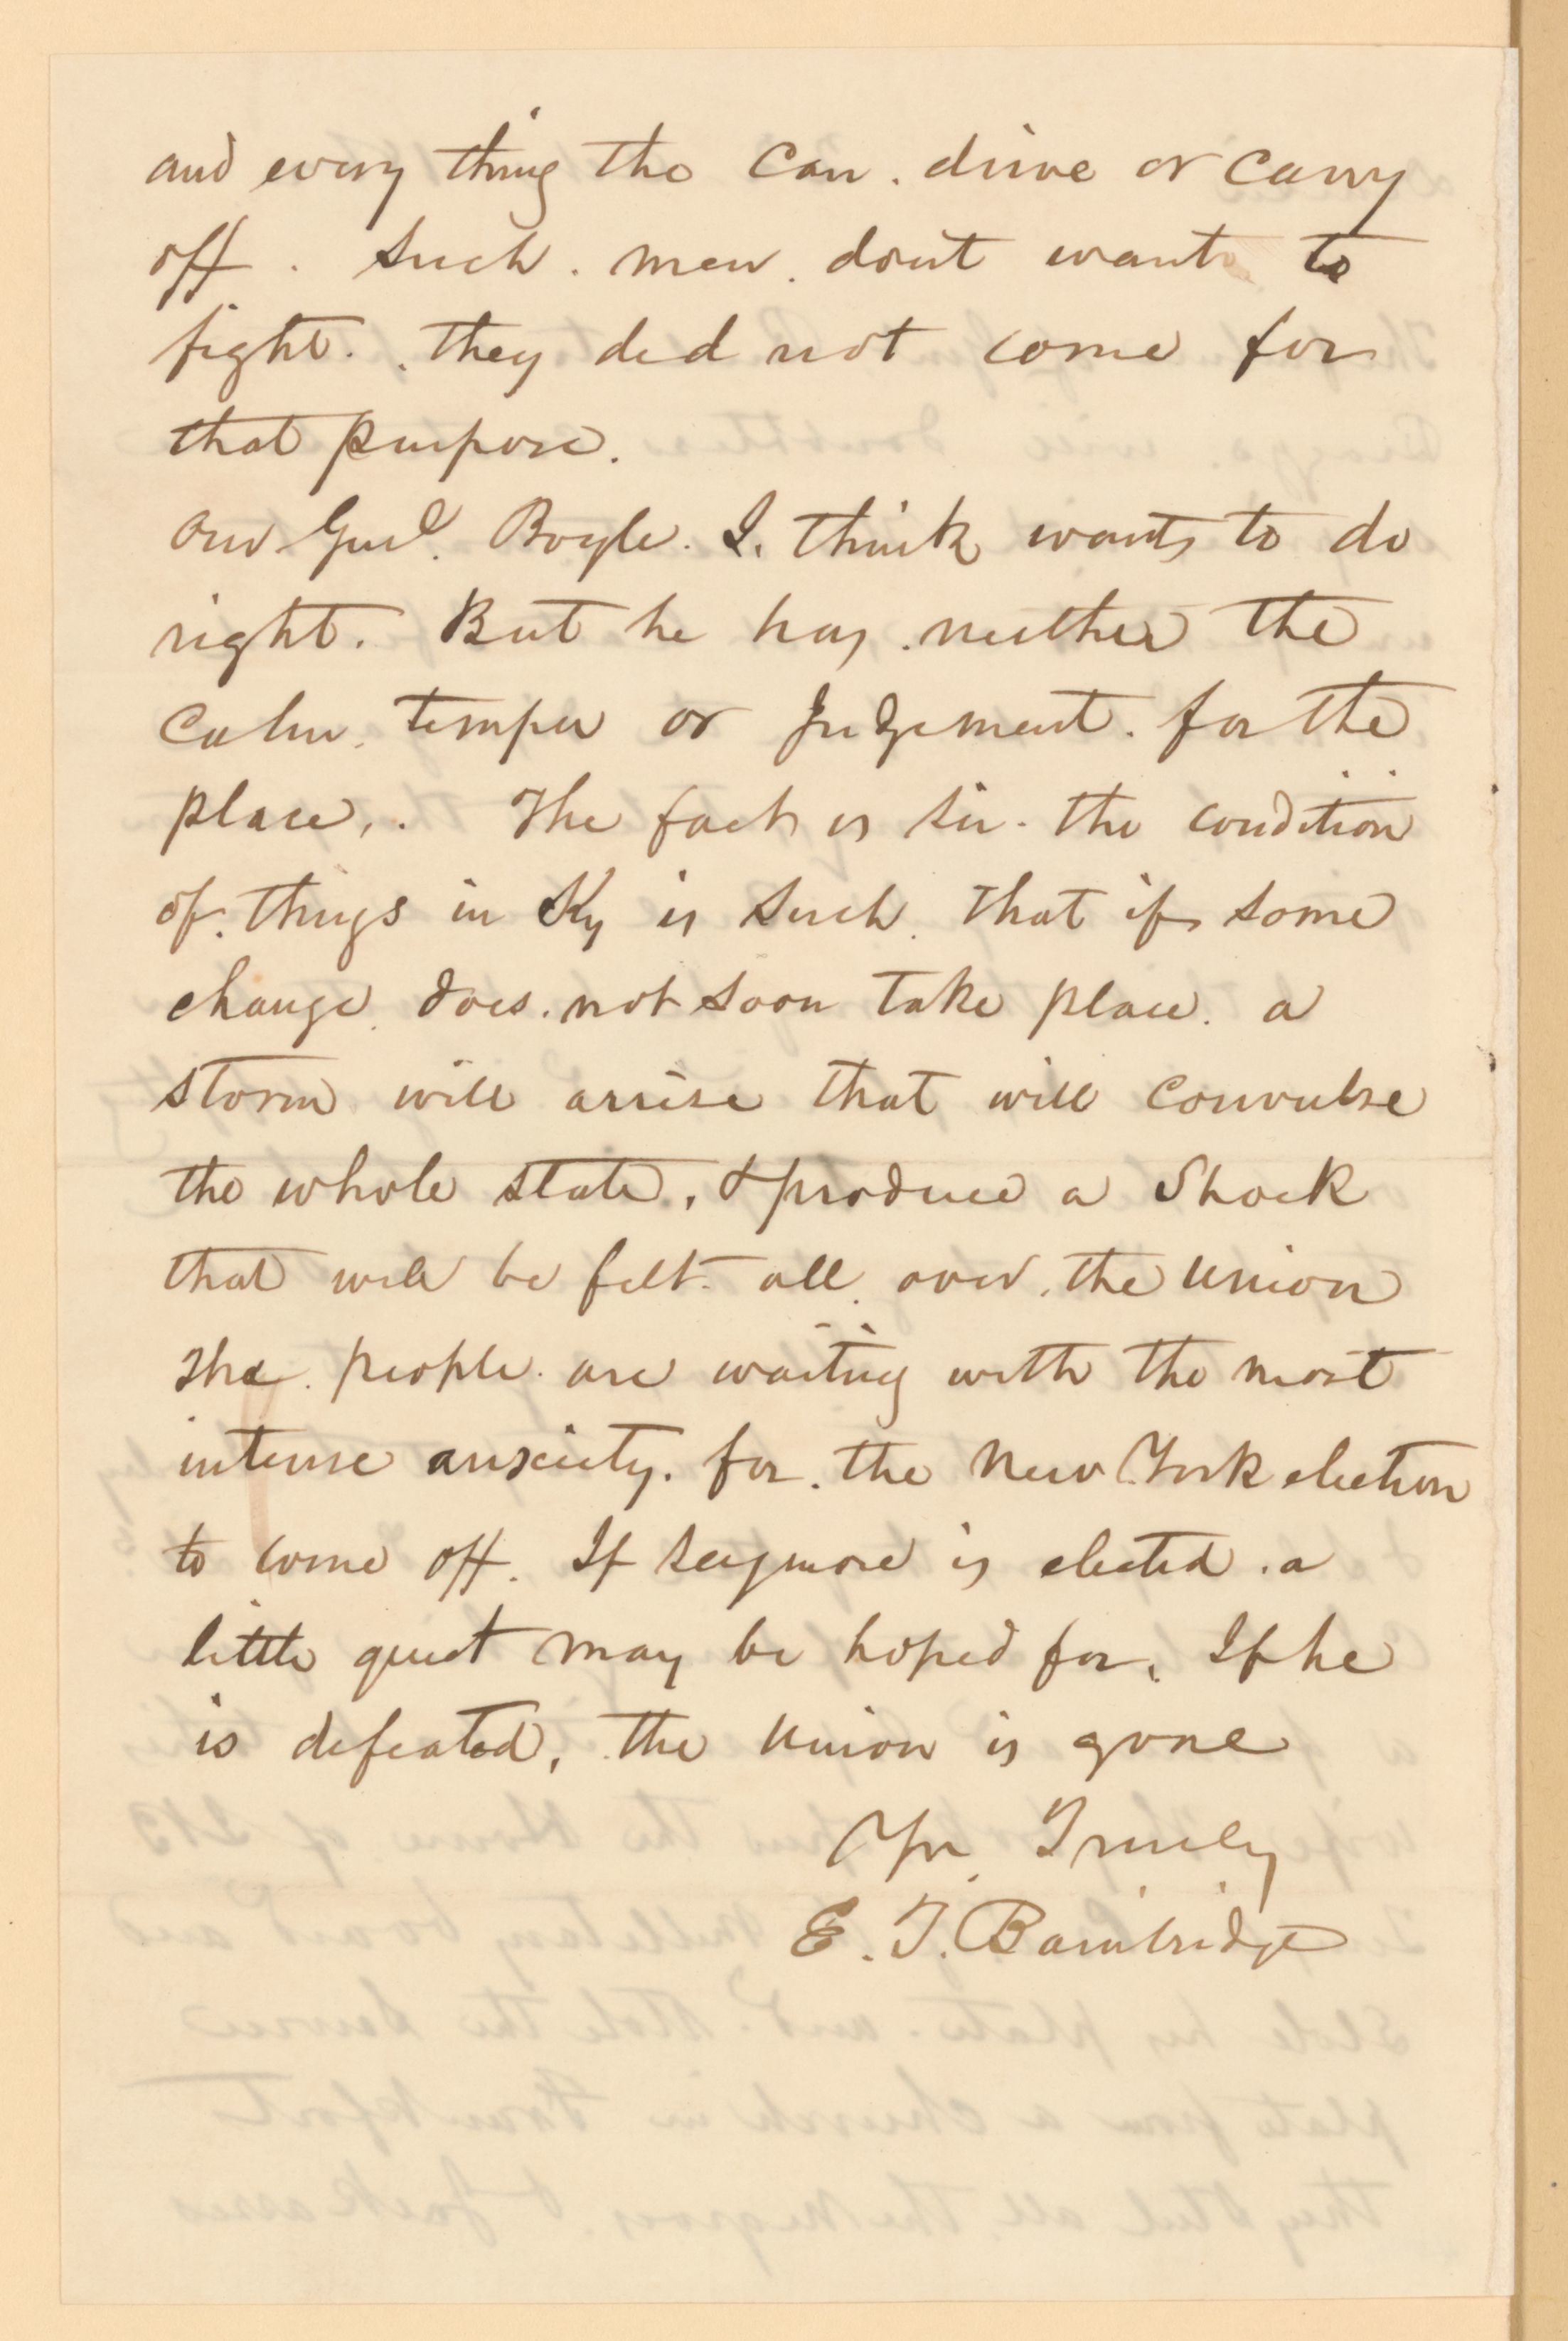 and every thing the can. drive or carry
off. Such. men. dont want to
fight. they did not come for
that purpose.
Our Genl. Boyle. I. think wants to do
right. But he has. neither the
calm. temper or judgement. for the
place,. The fact is sir. the condition
of. things in Ky is such. that if some
change. does. not soon take place. a
storm will arrise that will convulse
the whole state, & produce a shock
that will be felt all. over. the Union
The. people. are waiting with the most
intense anxiety. for. the New York election
to come off. If Seymore is elected. a
little quiet may be hoped for. If he
is defeated, the Union is gone
Yrs. Truely
E. T. Bainbridge